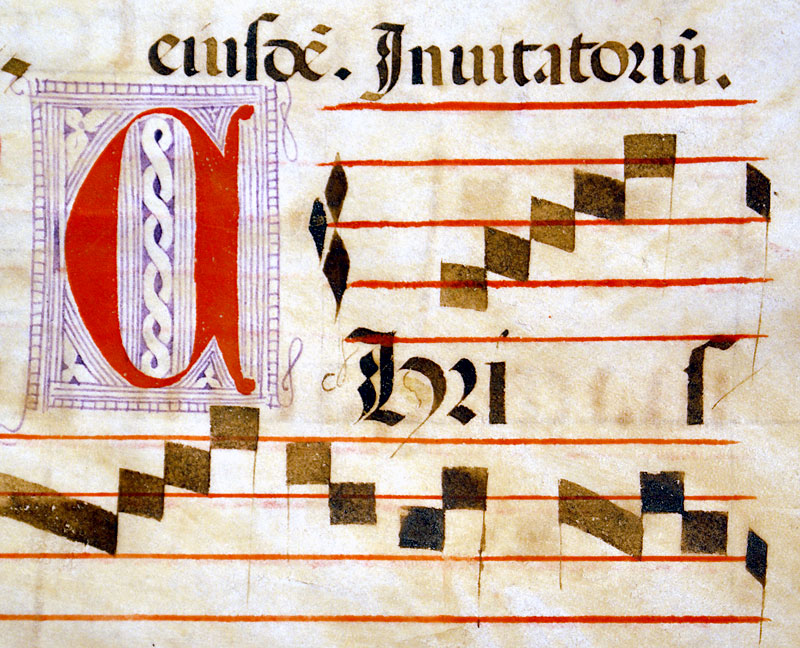 eiuſdē. Inuitatoriū.
CHri ſ